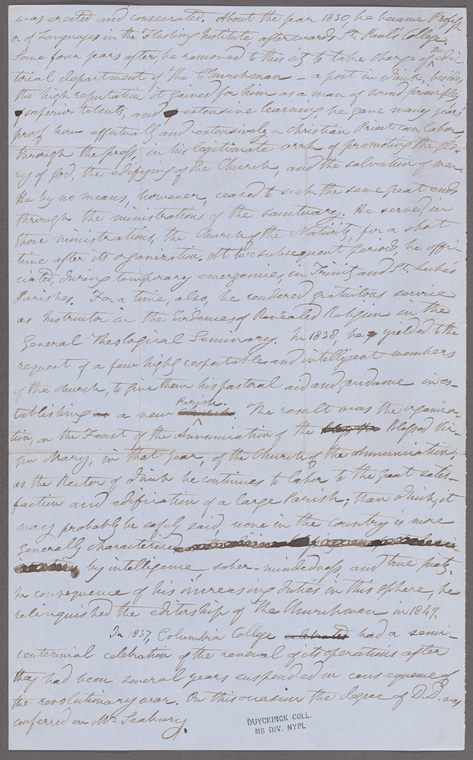 was erected and consecrated. About the year 1830, he became Profess-
or of Languages in the Flushing Institute afterwards St. Paul's College.
Some four years after he removed to this city to take charge of the Edi-
torial department of the Churchman – a post in which, besides
the high reputation it gained for him as a man of sound principles,
superior talents, and extensive learning, he gave many years
proof how effectually and extensively a Christian Priest can labor
through the press, in his legitimate work of promoting the glo-
ry of God, the edifying of the Church, and the salvation of men.
He by no means, however, ceased to seek the same great ends
through the ministrations of the sanctuary. He served in
those ministrations, the Church of the Nativity, for a short
time after its organization. At two subsequent periods, he offi-
ciated, during temporary emergencies, in Trinity and St. Luke's
Parishes. For a time, also, he rendered gratuitous service
as Instructor in the Evidences of Revealed Religion in the
General Theological Seminary. In 1838, he yielded to the
request of a few highly respectable and intelligent members
of the church, to give them his pastoral aid and guidance in es-
tablishing a new Parish. Church. The result was the organiza-
tion, on the Feast of the Annunciation of the Blessed Vir-
gin Mary, in that year, of the Church of the Annunciation;
as the Rector of which he continues to labor to the great satis-
faction and edification of a large Parish; than which, it
may probably be safely said, none in the country is more
generally characterized
by intelligence, sober-mindedness, and true piety.
In consequence of his increasing duties in this sphere, he
relinquished the editorship of the Churchman in 1849.
In 1837, Columbia College celebrated had a semi-
centennial celebration of the renewal of its operations after
they had been several years suspended in consequence of
the revolutionary war. On this occasion the degree of D.D. was
conferred on Mr. Seabury.
DUYCKINCK COLL.
MS DIV. NYPL